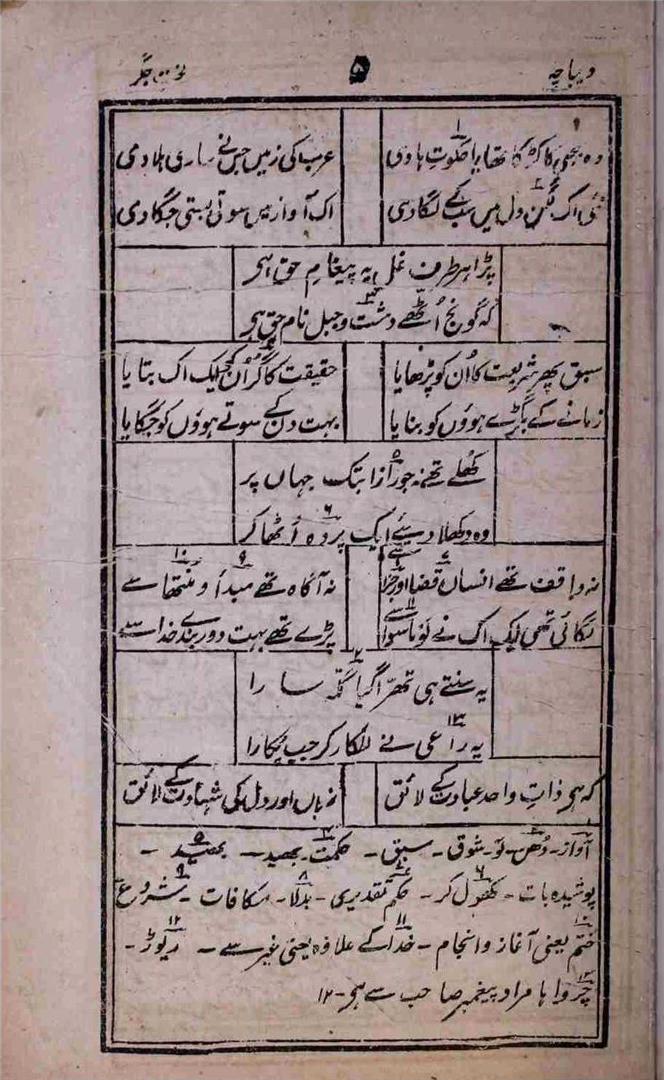 دیباچہ ۵ لخت جگر
وہ بجلی کا کڑکا تھا یا صوتِ ہادی عرب کی زمیں جس نے ساری ہلادی
نئی اک لگن دل میں سب کے لگادی اک آواز میں سوتی بستی جگادی
پڑا ہر طرف غل یہ پیغامِ حق ہی
کہ گونج اُٹھے دشت و جبل نامِ حق ہی
سبق پھر شریعت کا اُن کو پڑھایا حقیقت کا گر اُن کو ایک اک بتایا
زمانے کے بگڑے ہوؤں کو بنایا بہت دن کے سوتے ہووں کو جگایا
کھُلے تھے نہ جو راز ابتک جہاں پر
وہ دکھلا دیئے ایک پردہ اُٹھا کر
نہ واقف تھے انساں قضا اور جزا سے نہ آگاہ تھے مبدأ و منتھا سے
لگائی تھی ایک اک نے لَو ماسوا سے پڑے تھے بہت دور بندے خدا سے
یہ سنتے ہی تھرّا گیا گلّہ سارا
یہ راعی نے للکار کر جب پکارا
کہ ہی ذاتِ واحد عبادت کے لائق زباں اور دل کی شہادت کے لائق
آواز۔ دُھن۔ لَو۔ شوق۔ سبق۔ حکمت۔ بھید۔ بھید۔
پوشیدہ بات۔ کھول کر۔ حکم تقدیری۔ بدلا۔ مکافات۔ شروع
ختم یعنی آغاز و انجام۔ خدا کے علاوہ یعنی غیر سے۔ ریوڑ۔
چرواہا مراد پیغمبر صاحب سے ہی۔ ۱۲